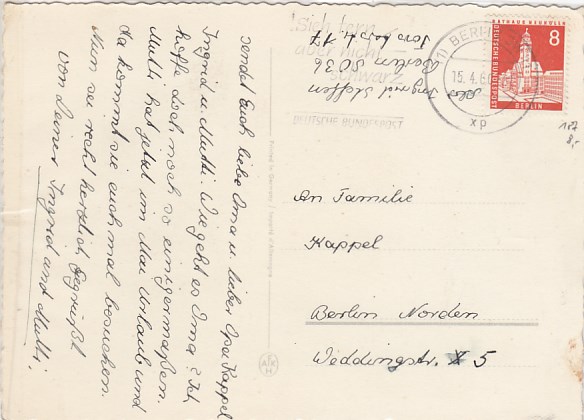 sendet Euch liebe Oma u. lieber Opa Kappel
Ingrid u. Mutti. Wie geht es Oma? Ich
hoffe doch noch so einigermaßen.
Mutti hat jetzt im Mai Urlaub und
da kommt sie euch mal besuchen.
Nun sei recht herzlich Gegrüßt
von Deiner Ingrid und Mutti.
Abs. Ingrid Steffen
Berlin SO 36
17
Sieh fern
aber nicht
schwarz
DEUTSCHE BUNDESPOST
(1) BERLIN
15.4.6
xp
RATHAUS NEUKÖLLN
8
DEUTSCHE BUNDESPOST
BERLIN
187
8,-
An Familie
Kappel
Berlin Norden
Weddingstr. 5
Printed in Germany / Importé d'Allemagne